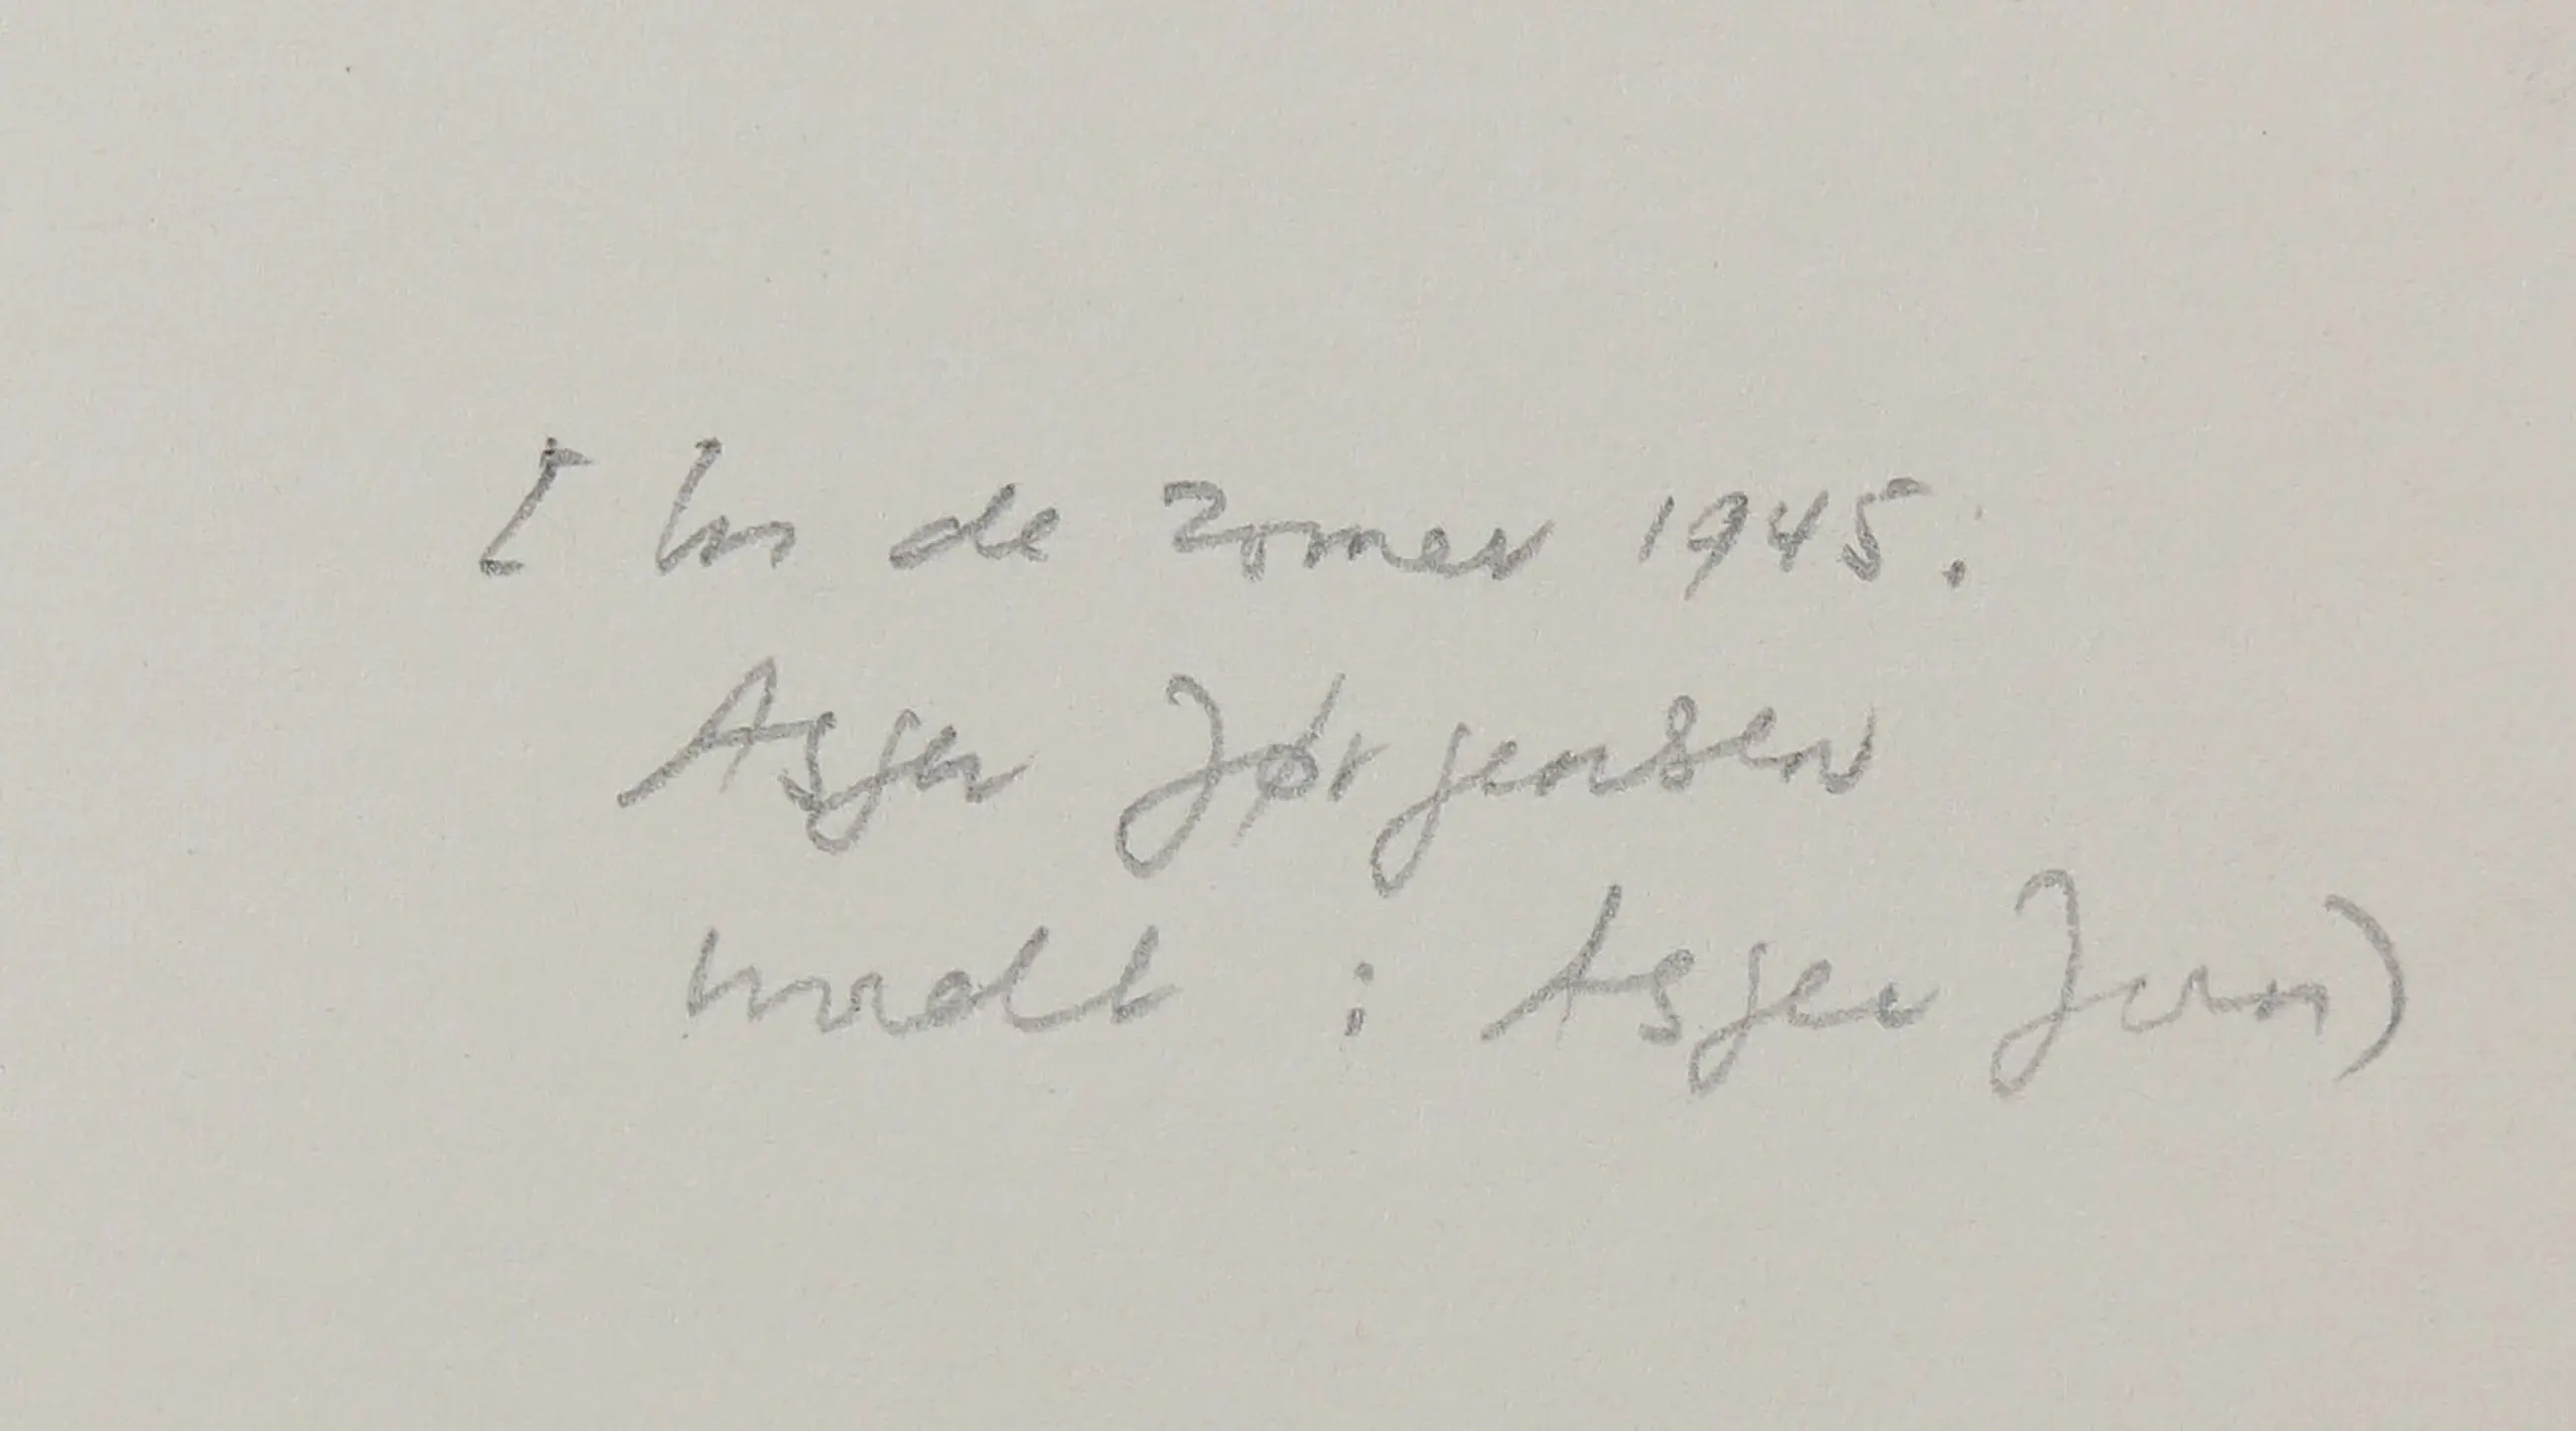 [ In de zomer 1945:
Asger Jørgensen
wordt : Asger Jorn)